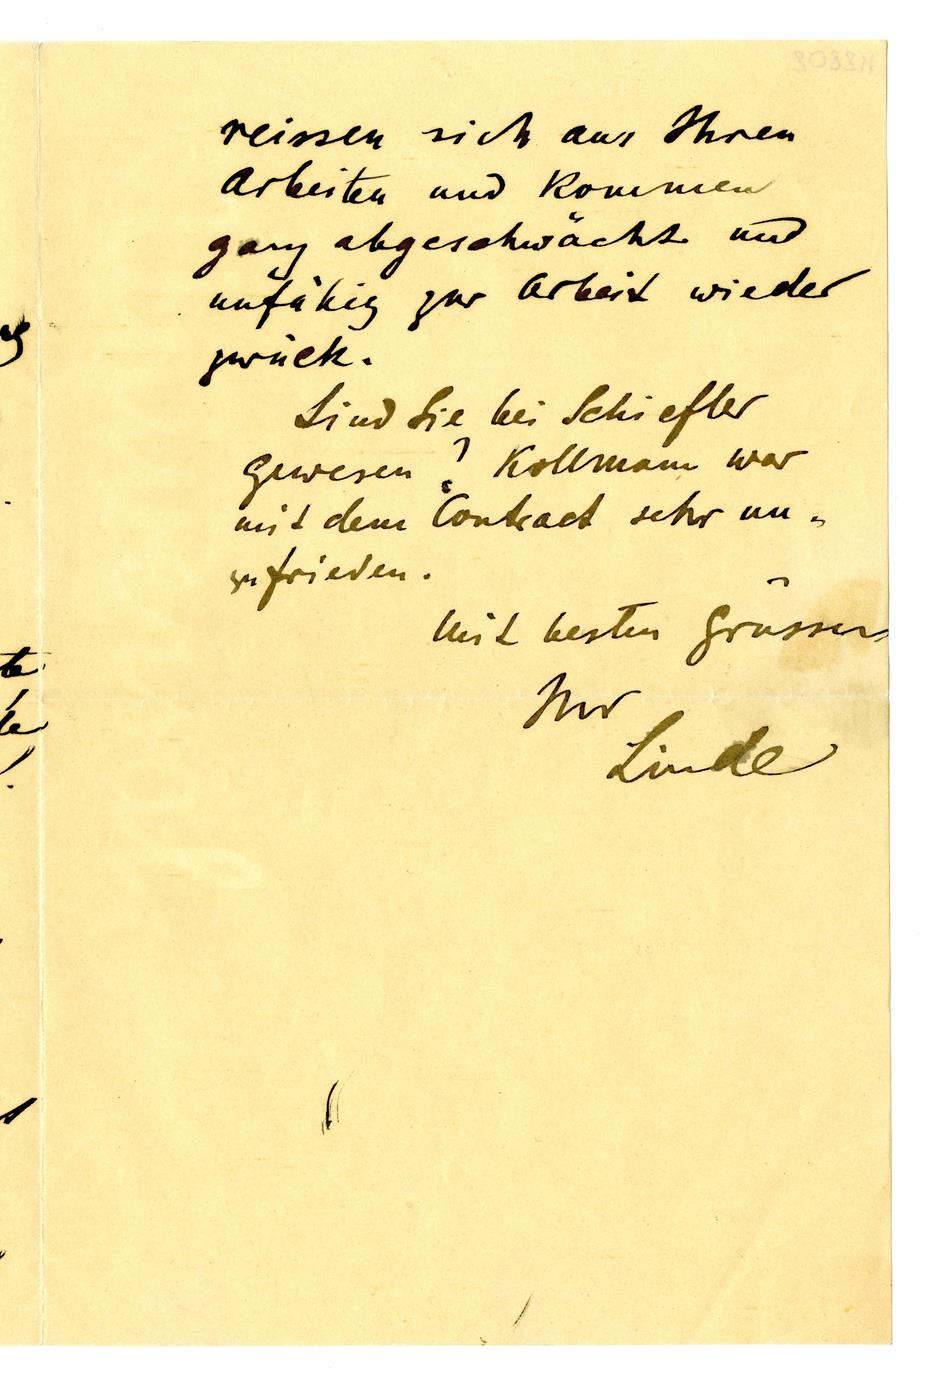 reissen sich aus Ihren
Arbeiten und kommen
ganz abgeschwächt und
unfähig zur Arbeit wieder
zurück.
Sind Sie bei Schiefler
gewesen? Kollmann war
mit dem Contract sehr un-
zufrieden.
Mit besten Grüssen
Ihr
Linde